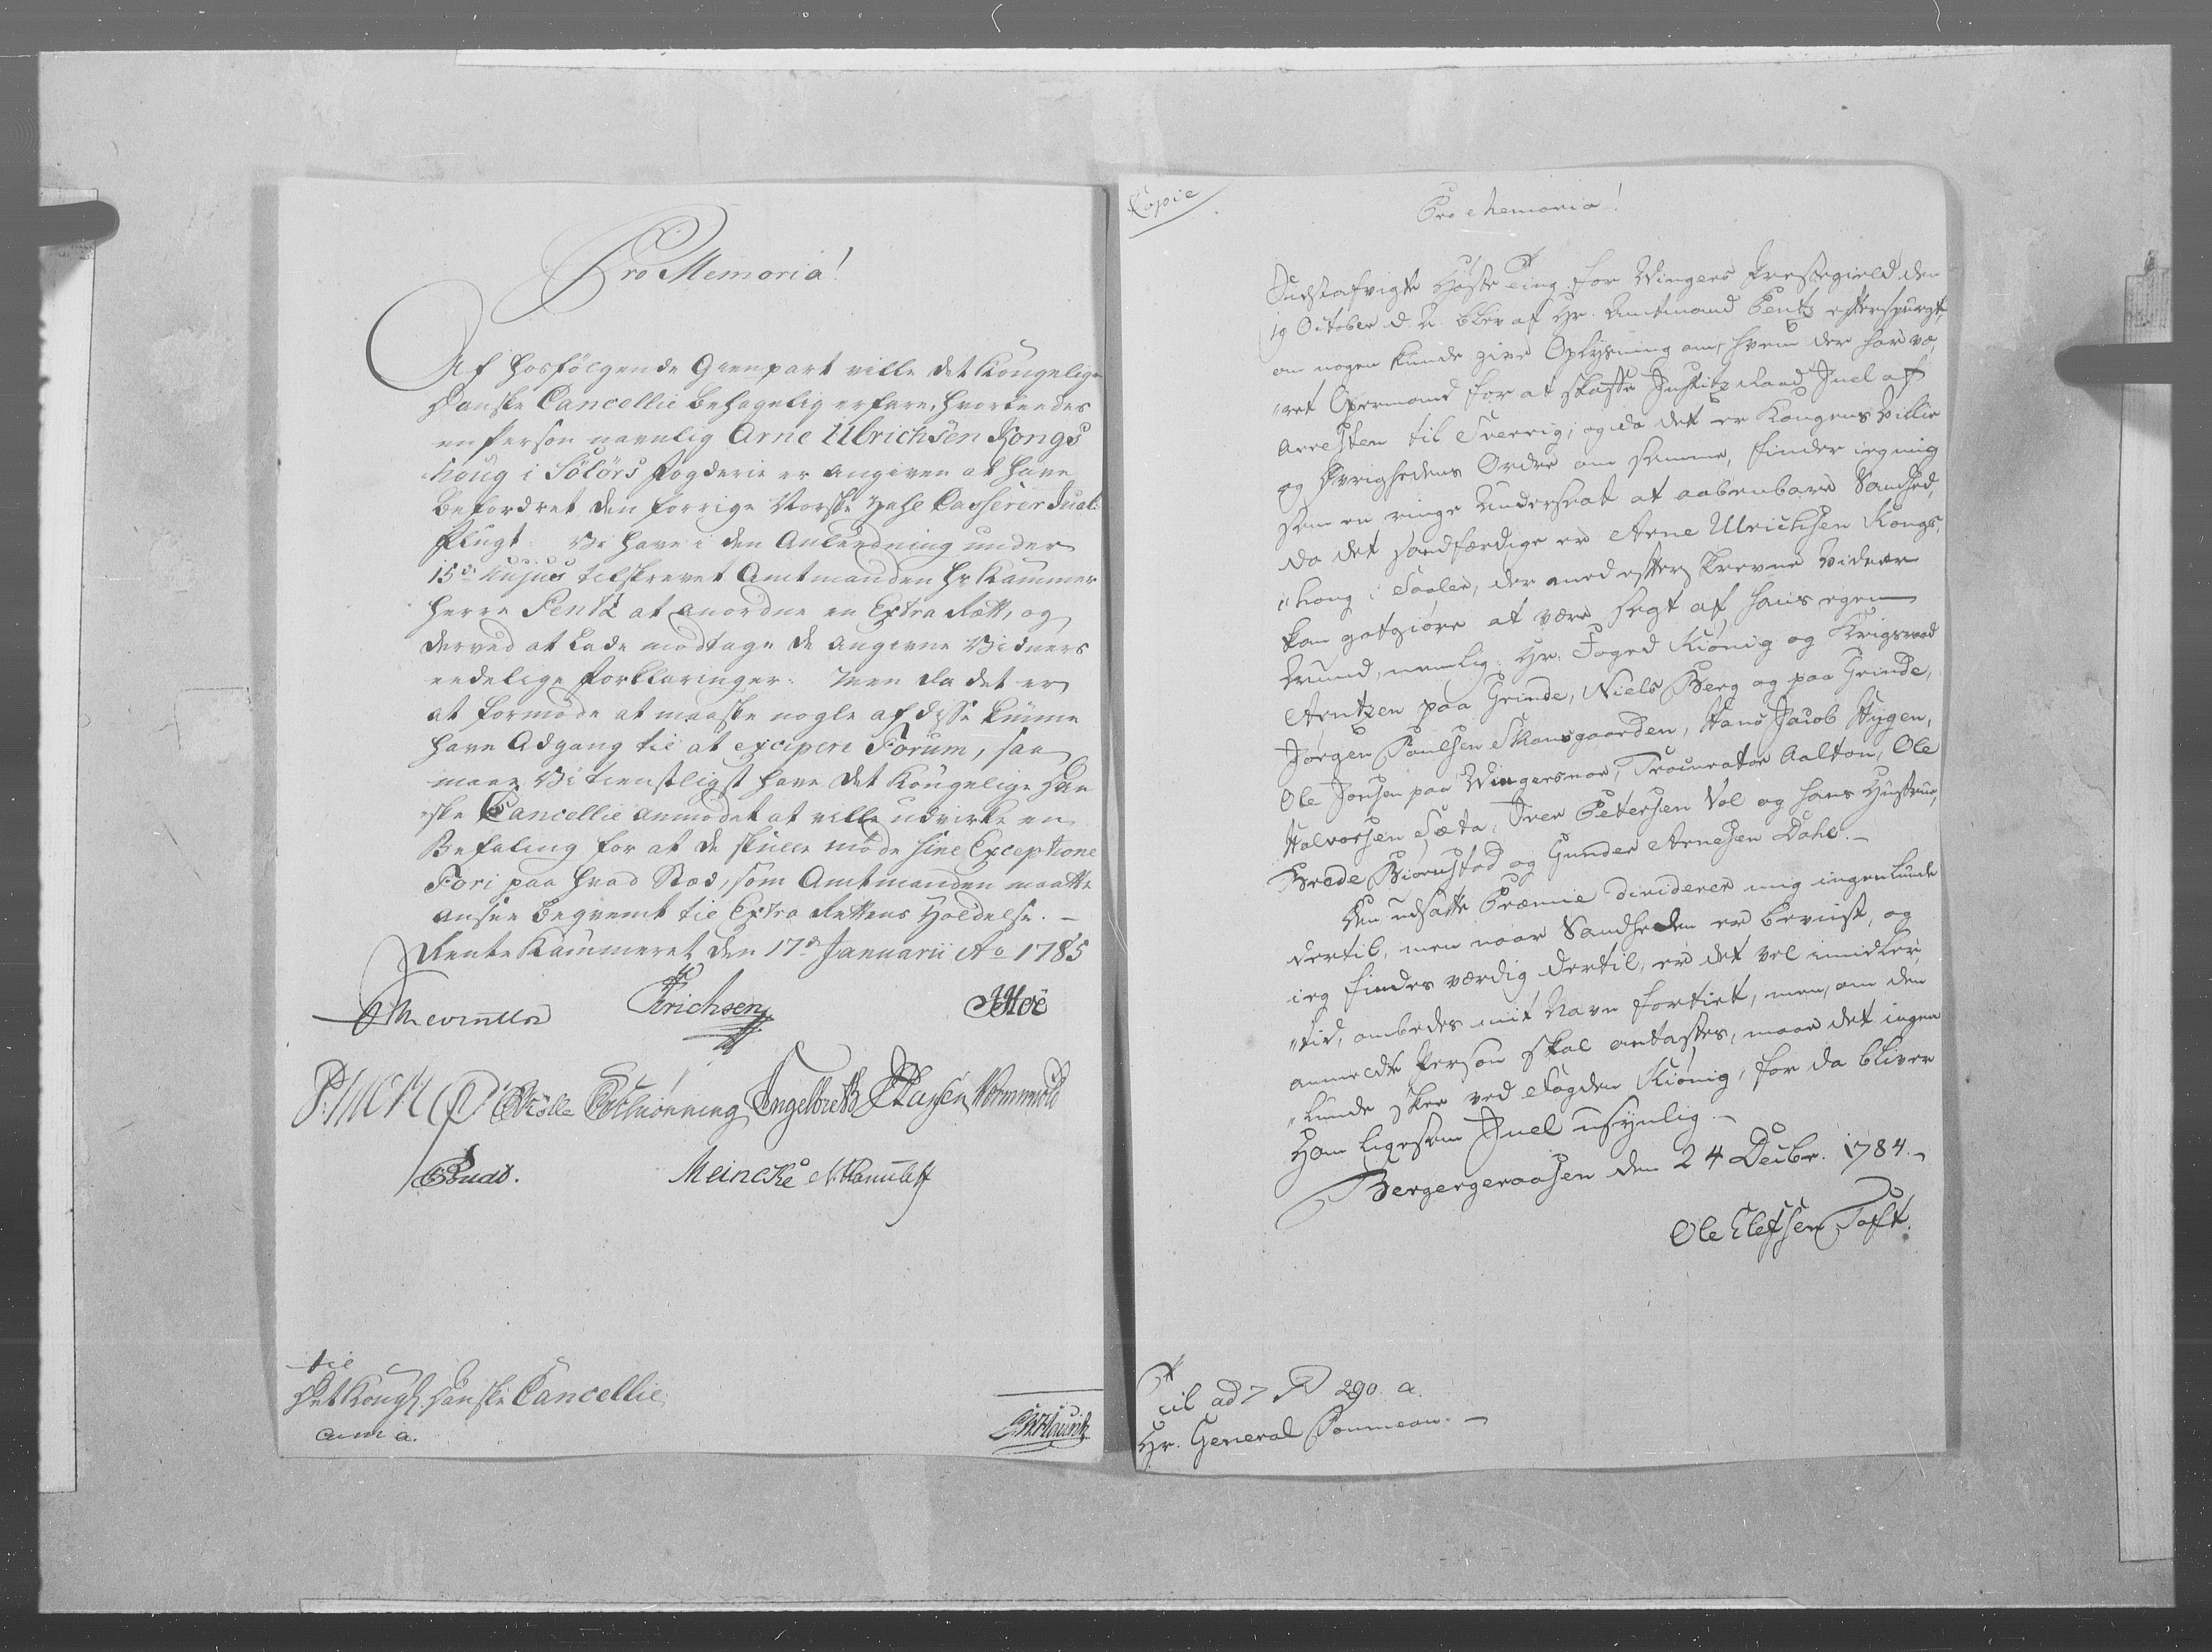 Pro Memoria!
Af hosfölgende Gienpart ville det Kongelige
Danske Cancellie behagelig erfare, hvorledes
en Person navnlig Arne Ulrichsen Kongs
houg i Solörs Fogderie er angiven at have
befordret den forrige Norske Zahl Casserer Juels
Flugt. Vi have i den Anledning under
15de hujus tilskrevet Amtmanden Hr Kammer
Herre Pentz at anordne en Extra Rætt, og
derved at lade modtage de angivne Vidners
eedelige Forklaringer. Men da det er
at formode at maaske nogle af disse kunne
have Adgang til at excipere Forum, saa
maae Vi tienstligst have det Kongelige Dan
"ske Cancellie anmodet at ville udvirke en
Befaling for at de skulle møde sine Exceptione
Fori paa hvad Stæd, som Amtmanden maatte
ansee beqvemt til Extra Rettens Holdelse. –
Rente Kammeret den 17de Januarii Ao 1785
Erichsen
Meincke
til
Det Kongl. Danske Cancellie
Copie
Pro Memoria!
Sidstafvigte Høste Ting for Wingers Præstegield den
19 October d. A. blev af Hr. Amtmand Pentz efterspurgt,
om nogen kunde give Oplysning om, hvem der har væ,
"ret Opermand for at skaffe Justitz Raad Juel af
Arresten til Sverrig; og da det er Kongens Villie
og Øvrighedens Ordre om samme, finder ieg mig
som en ringe Undersaat at aabenbare Sandhed,
da det sandfærdige er Arne Ulrichsen Kongs,
"houg i Saaler, der med efterskrevne Vidner
kan gotgiøre at være sagt af hans egen
Mund, nemlig: Hr. Foged Kiønig og Krigsraad
Arntzen paa Grinde, Niels Berg og paa Grinde,
Jørgen Poulsen Skansgaarden, Hans Jacob Hygen,
Ole Jonsen paa Wingersnor, Procurator Aalton, Ole
Halvorsen Sæta, Iver Petersen Vol og hans Hustrue,
Brede Biørnstad og Gunder Arnesen Dahl. –
Den udsatte Præmie dividerer mig ingenlunde
dertil, men naar Sandheden er beviist, og
ieg findes værdig dertil, er det vel imidler,
"tid, ombedes mit Navn fortiet, men, om den
anmeldte Person skal antastes, maae det ingen
"lunde skee ved Fogden Kiønig, for da bliver
Han ligesom Juel usynlig. –
Bergergeraasen den 24 Decbr. 1784. –
Ole Elefsen Toft.
til ad 7 290 a.
Hr. General